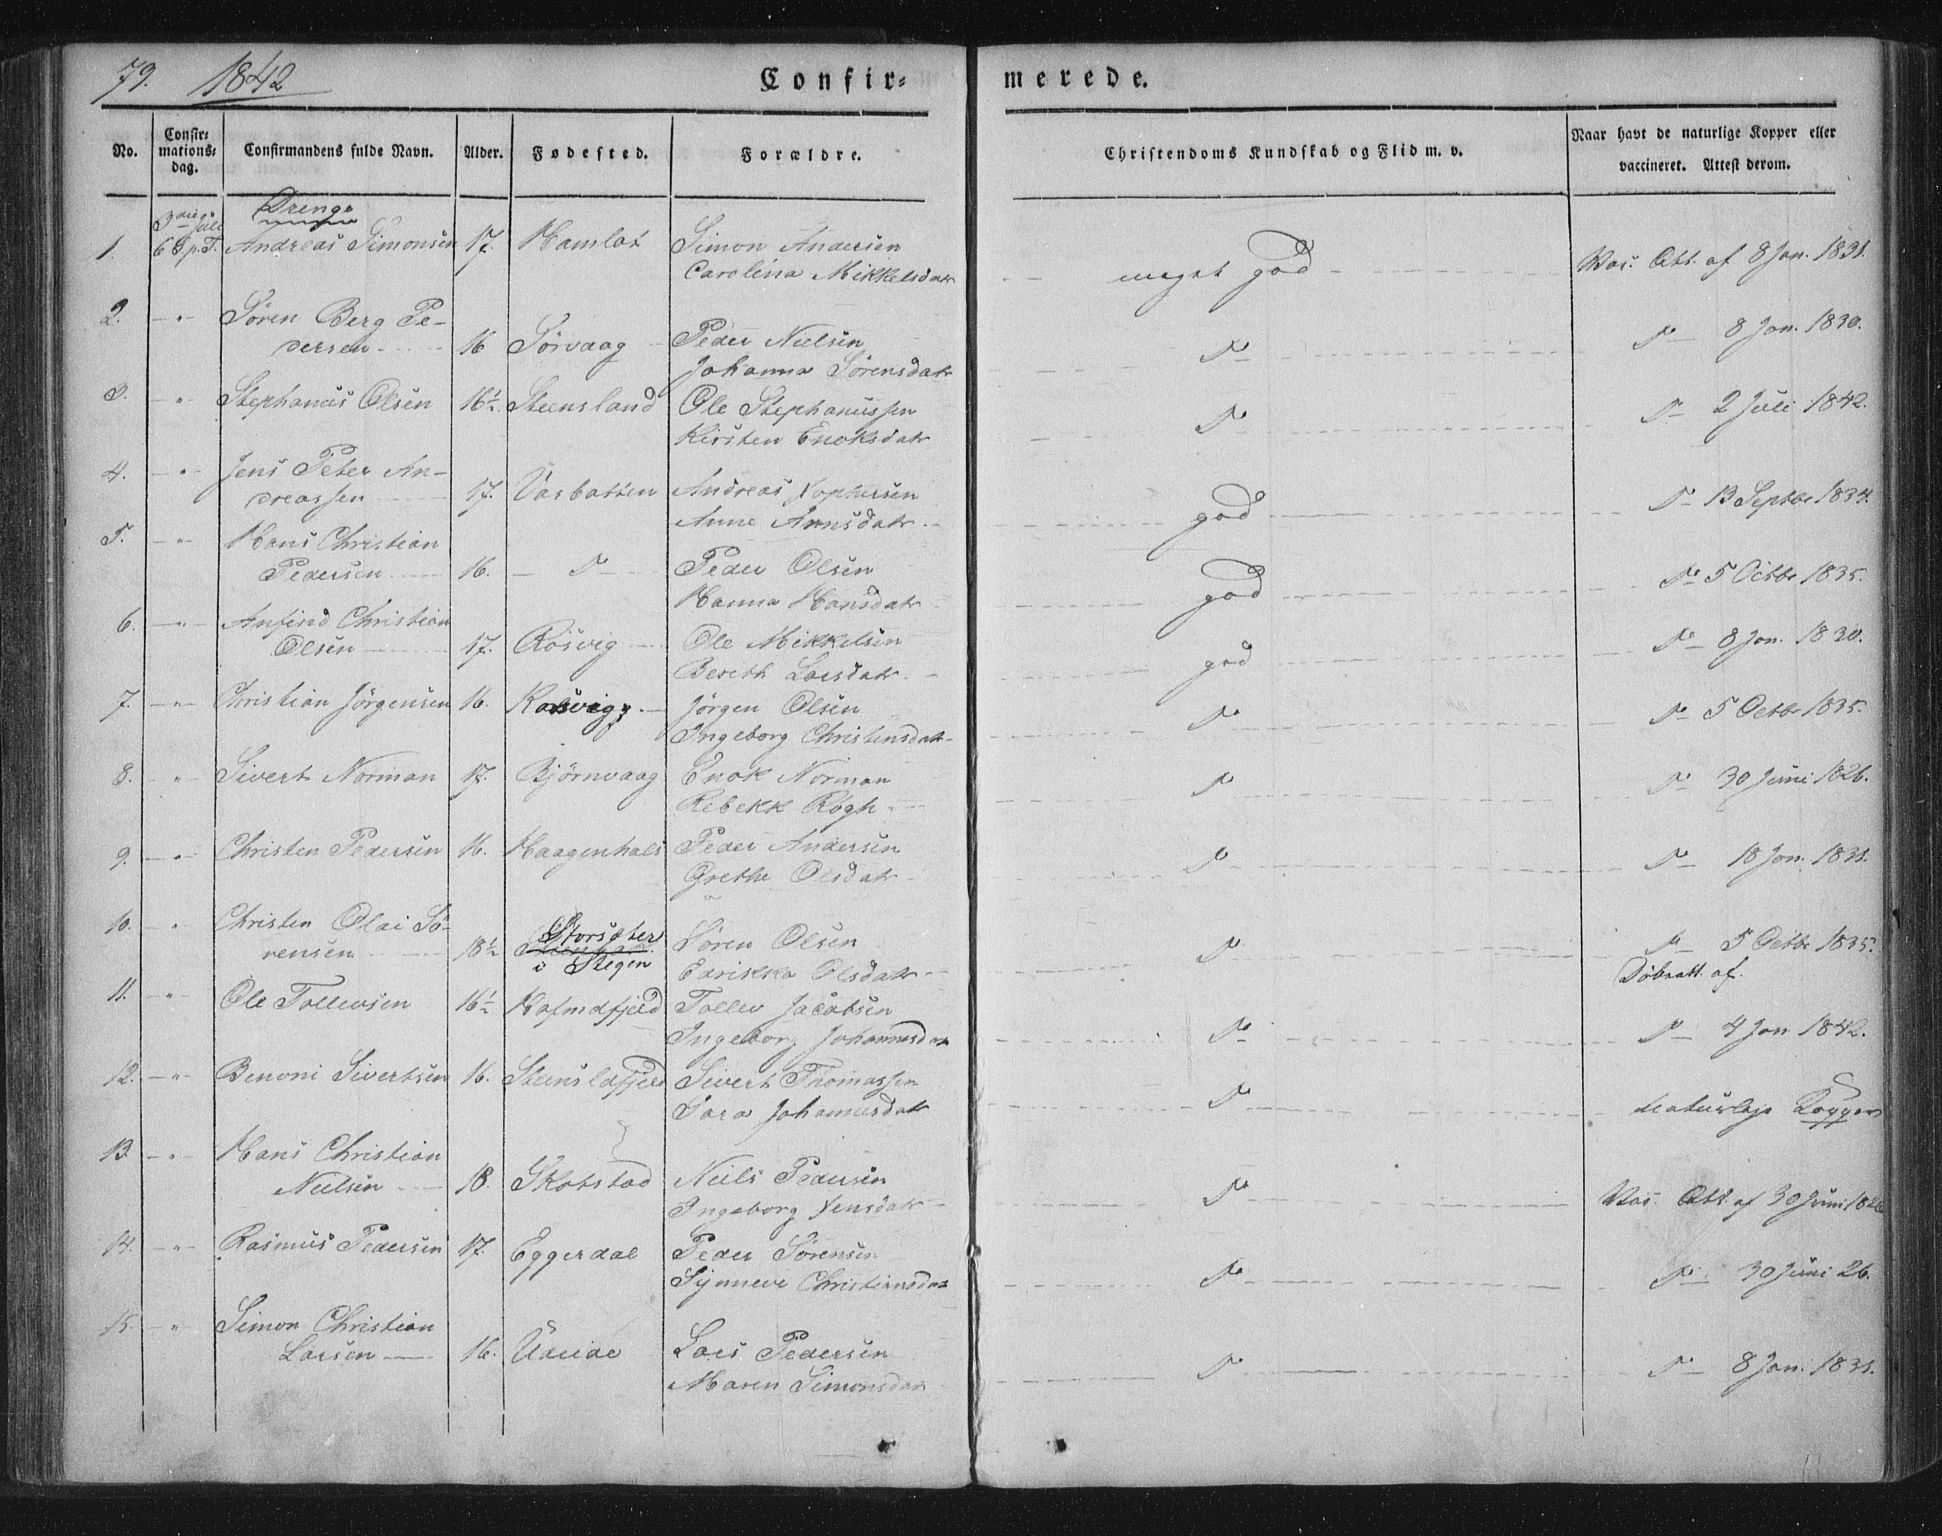 79. 1842
Confir= merede.
No. Confir= mations= dag. Confirmandens fulde Navn. Alder. Fødested. Forældre. Christendoms Kundskab og Flid m. v. Naar havt de naturlige Kopper eller vaccineret. Attest derom.
Drenge
3die Juli
1. 6 S. p. T. Andreas Simonsen 17. Hamlot Simon Andersen
Carolina Mikkelsdatr meget god Vac. Att. af 8 Jan. 1831.
2. " Søren Berg Pe-
dersen 16 Sørvaag Peder Nielsen
Johanna Sörensdatr D° D° 8 Jan. 1830.
3. " Stephanus Olsen 16½ Steensland Ole Stephanussen
Kirsten Enoksdatr D° D° 2 Juli 1842.
4. " Jens Peter An-
dreassen 17. Vasbotten Andreas
Anne god D° 13 Septbr 1834.
5. " Hans Christian
Pedersen 16. D° Peder Olsen
Hanna Hansdatr god D° 5 Octbr 1835.
6. " Anfind Christian
Olsen 17. Rösvig Ole Mikkelsen
Bereth Larsdatr god D° 8 Jan. 1830.
7. " Christian Jörgensen 16. Jörgen Olsen
Ingeborg Christensdatr D° D° 5 Octbr 1835.
8. " Sivert Norman 17. Björnvaag Enok Norman
Rebekk Røgh D° D° 30 Juni 1826.
9. " Christen Pedersen 16. Haagenhals Peder Andersen
Grethe Olsdatr D° D° 18 Jan. 1831.
10. " Christen Olai Sö-
rensen 18½ Storsæter
i Stegen Sören Olsen
Olsdatr D° D° 5 Octbr 1835.
Döbeatt. af.
11. " Ole Tollevsen 16½ Tollev Jacobsen
Ingeborg Johannesdatr D° D° 4 Jan 1842.
12. " Benoni Sivertsen 16. Steensldfjeld Sivert Thomassen
Sara Johannesdatr D° naturlige Kopper
13. " Hans Christian
Nielsen 18. Skotstad Niels Pedersen
Ingeborg Jensdatr D° Vac. Att. af 30 Juni 1826
14. " Rasmus Pedersen 17. Eggerdal Peder Sörensen
Synneve Christiansdatr D° D° 30 Juni 26.
15. " Simon Christian
Larsen 16. Udeide Lars Pedersen
Maren Simonsdatr D° D° 8 Jan. 1831.